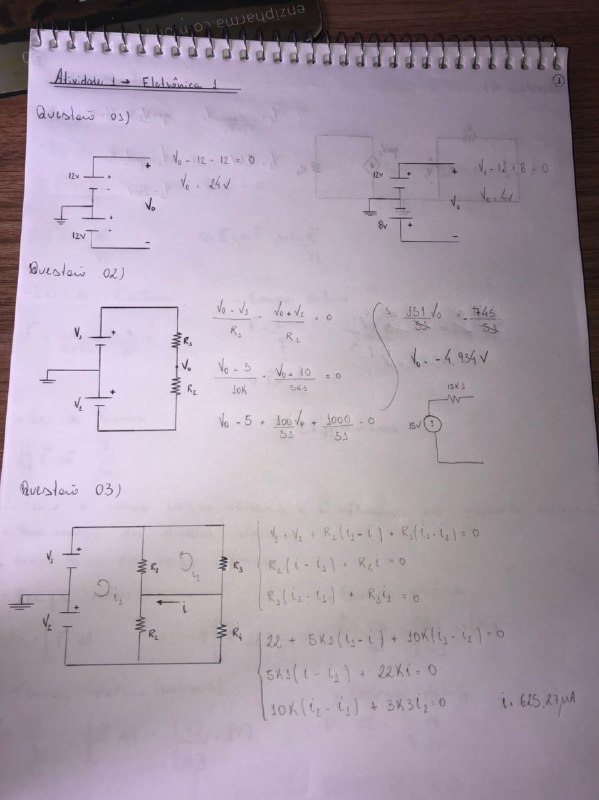 enzipharma.com.br
Atividade 1 → Eletrônica 1
1
Questão 01)
12v
+
-
+
-
12v
+
V₀
-
V₀ - 12 - 12 = 0
V₀ = 24V
12v
+
-
+
8v
+
V₀
-
V₀ - 12 + 8 = 0
V₀ = 4V
Questão 02)
V₁
+
V₂
+
R₁
V₀
R₂
V₀ - V₁ / R₁ + V₀ + V₂ / R₂ = 0
V₀ - 5 / 10K + V₀ + 10 / 5K1 = 0
V₀ - 5 + 100V₀ / 51 + 1000 / 51 = 0
151 / 51 V₀ = - 745 / 51
V₀ = -4,934V
15K1
15V
Questão 03)
V₁
+
V₂
+
R₁
R₂
R₃
R₄
i₁
i₂
i
V₁ + V₂ + R₂(i₁-i) + R₁(i₁-i₂) = 0
R₂(i-i₁) + R₄i = 0
R₁(i₂-i₁) + R₃i₂ = 0
22 + 5K1(i₁-i) + 10K(i₁-i₂) = 0
5K1(i-i₁) + 22Ki = 0
10K(i₂-i₁) + 3K3i₂ = 0
i = 625,27µA